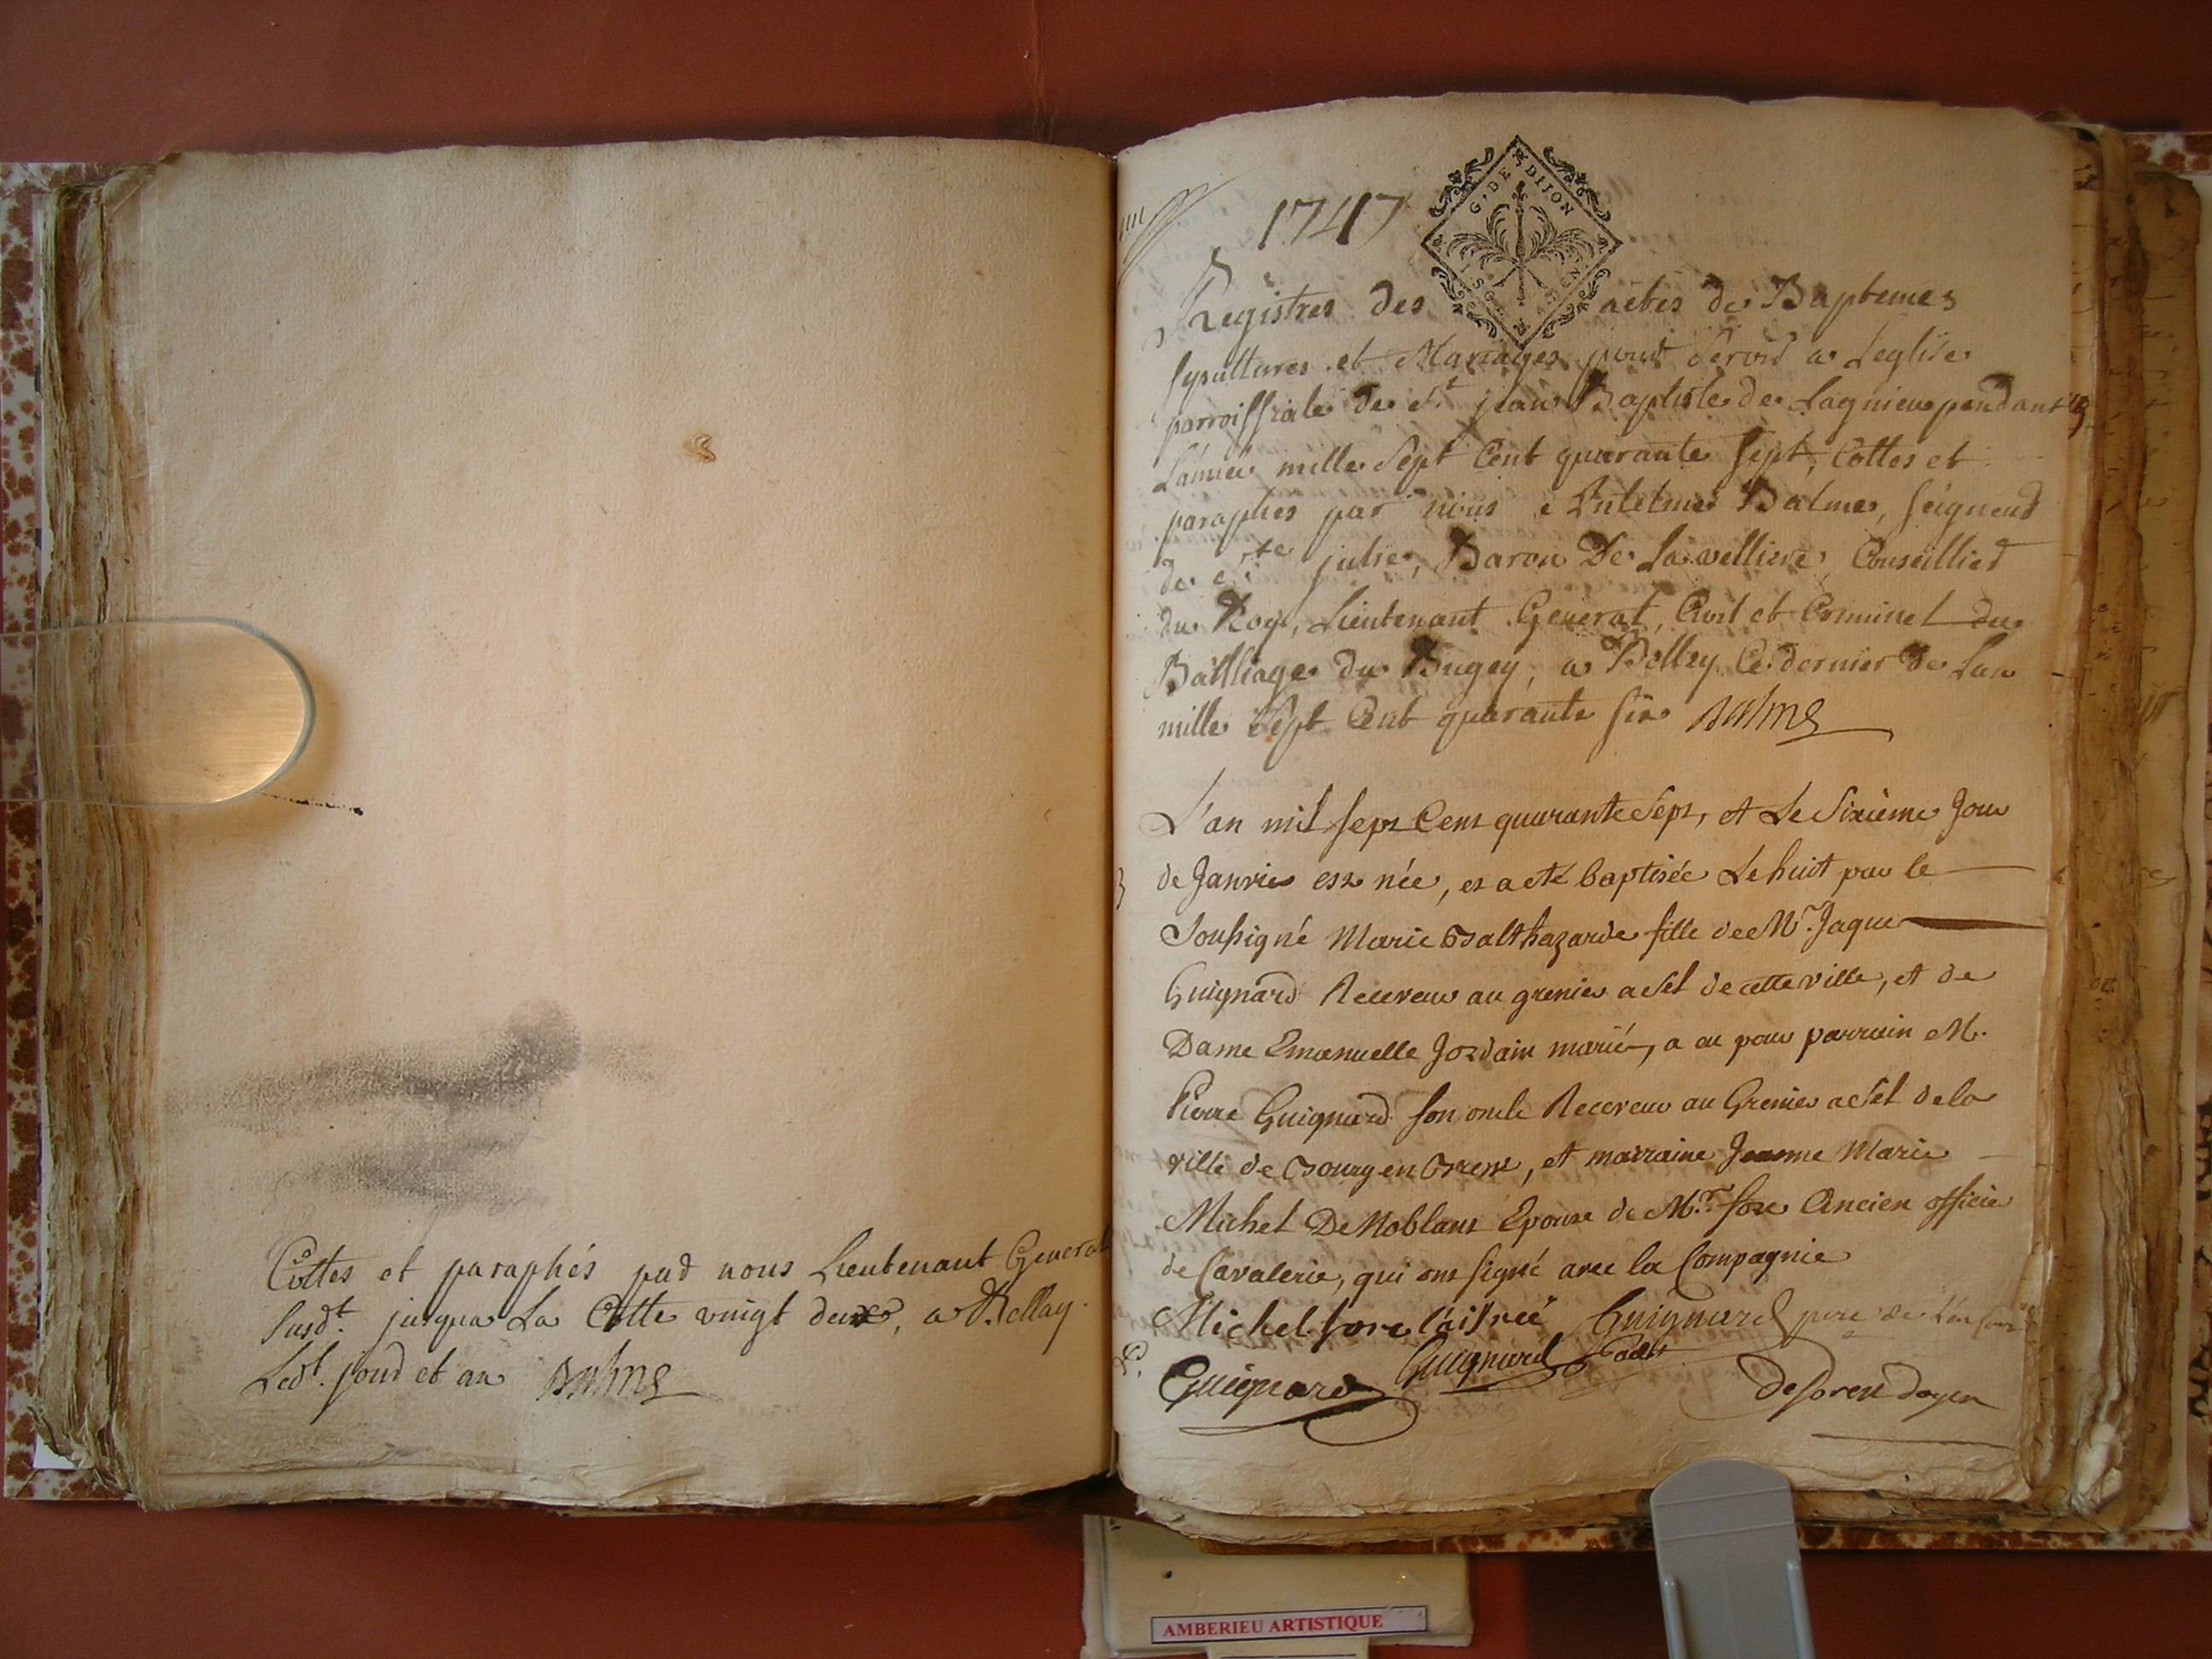 Cottes et paraphés par nous Lieutenant General
susdt. jusqua La Cotte vingt deux, a Bellay.
Ledt. jour et an Balme
1747
G. DE DIJON
Registres des actes de Baptemes
sypultures et Mariages pour servir a Leglise
parroissiale de St jean Baptiste de Lagnieu pendant
L'année mille sept Cent quarante sept, Cottes et
paraphes par nous Antelme Balme, seigneur
de Ste julie, Baron De La velliere, Conseillier
du Roy, Lieutenant General, Civil et Criminel du
Bailliage du Bugey, a Belley Ce dernier de Lan
mille sept Cent quarante six Balme
L'an mil sept Cent quarante sept, et Le sixième Jour
de Janvier est née, et a eté baptisée Le huit par le
soussigné Marie Balthazarde fille de Mr. Jaque
Guignard Receveur au grenier a sel de cette ville, et de
Dame Emanuelle Jordain marié, a eu pour parrain M.
Pierre Guignard son oncle Receveur au Grenier a sel de la
ville de Bourg en Bresse, et marraine Jeanne Marie
Michel De Noblans Epouse de Mr. fore Ancien officier
de Cavalerie, qui ont signé avec la Compagnie
Michel fore Guignard pere de
Guignard Guignard
Desoren doyen
AMBERIEU ARTISTIQUE